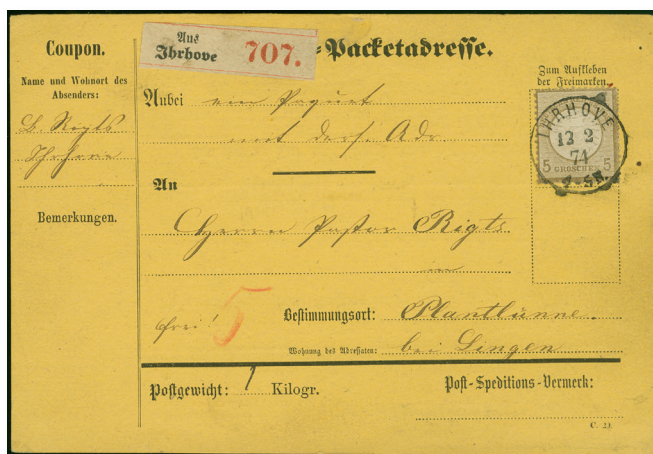 Coupon.
Name und Wohnort des
Absenders:
Ihrhove
Bemerkungen.
Aus
Ihrhove 707.
-Packetadresse.
Zum Aufkleben
der Freimarken.
Anbei ein Paquet
mit ders. Adr
IHRHOVE
13 2
74
5 GROSCHEN 5
An
Herrn Pastor
frei! 5
Bestimmungsort: Plantlünne.
Wohnung des Adressaten: bei Lingen
Postgewicht: 1 Kilogr.
Post-Speditions-Vermerk:
C. 23.